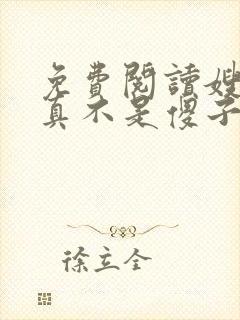 免費閱讀嫂
真不是傻子
徐立全